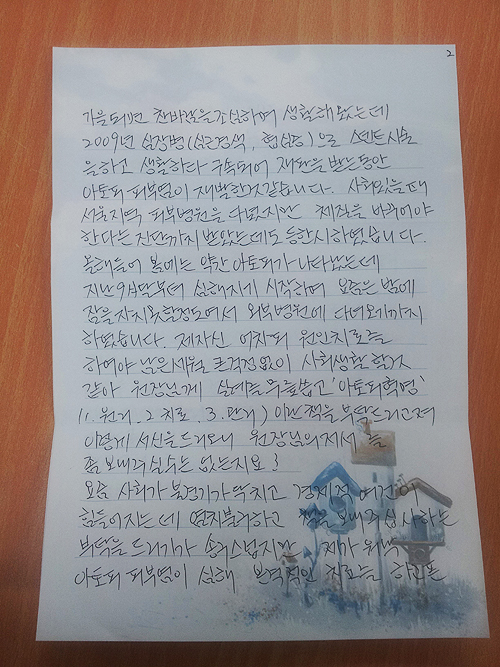 2
가을되면 찬바람을 조심하며 생활해 왔는데
2009년 심장병(심근경색, 협심증)으로 스텐트시술
을하고 생활하다 구속되어 재판을 받는동안
아토피 피부염이 재발한것같습니다. 사회있을때
서울지역 피부병원을 다녔지만 체질을 바꾸어야
한다는 진단까지 받았는데도 등한시하였습니다.
올해들어 봄에는 약간 아토피가 나타났는데
지난 9月달부터 심해지기 시작하여 요즘은 밤에
잠을 자지못할정도여서 외부병원에 다녀오기까지
하였습니다. 제자신 어차피 원인치료를
하여야 남은세월 큰걱정없이 사회생활 할것
같아 원장님께 실례를 무릅쓰고 '아토피혁명'
(1. 원리. 2 치료. 3. 관리) 이란책을 부탁드리고져
이렇게 서신을 드리오니 원장님의저서를
좀 보내주실수는 없는지요?
요즘 사회가 불경기가 닥치고 경제적 여건이
힘들어지는데 염치불구하고 책을 보내주십사하는
부탁을 드리기가 송구스럽지만 제가 워낙
아토피 피부염이 심해 본격적인 치료를 하려면